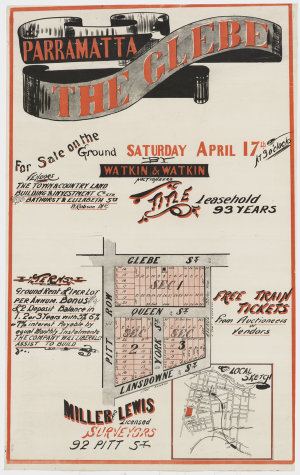 PARRAMATTA
THE GLEBE
For Sale on the
Ground SATURDAY APRIL 17th
At 3 o'clock
BY
WATKIN & WATKIN
AUCTIONEERS
THE TOWN & COUNTRY LAND
BUILDING & INVESTMENT Co Ltd
BATHURST & ELIZABETH Sts
TITLE Leasehold
93 YEARS
TERMS
Ground Rent £1 PER LOT
PER ANNUM. Bonus
£2 Deposit Balance in
1, 2 or 3 Years with 5% 6% &
7% interest Payable by
equal Monthly Instalments
THE COMPANY WILL LIBERALLY
ASSIST TO BUILD
GLEBE ST
SEC 1
QUEEN ST
PITT ROW
SEC 2
YORK ST
SEC 3
LANSDOWNE ST
FREE TRAIN
TICKETS
From Auctioneers
or
Vendors
LOCAL
SKETCH
MILLER & LEWIS
Licensed
SURVEYORS
92 PITT ST